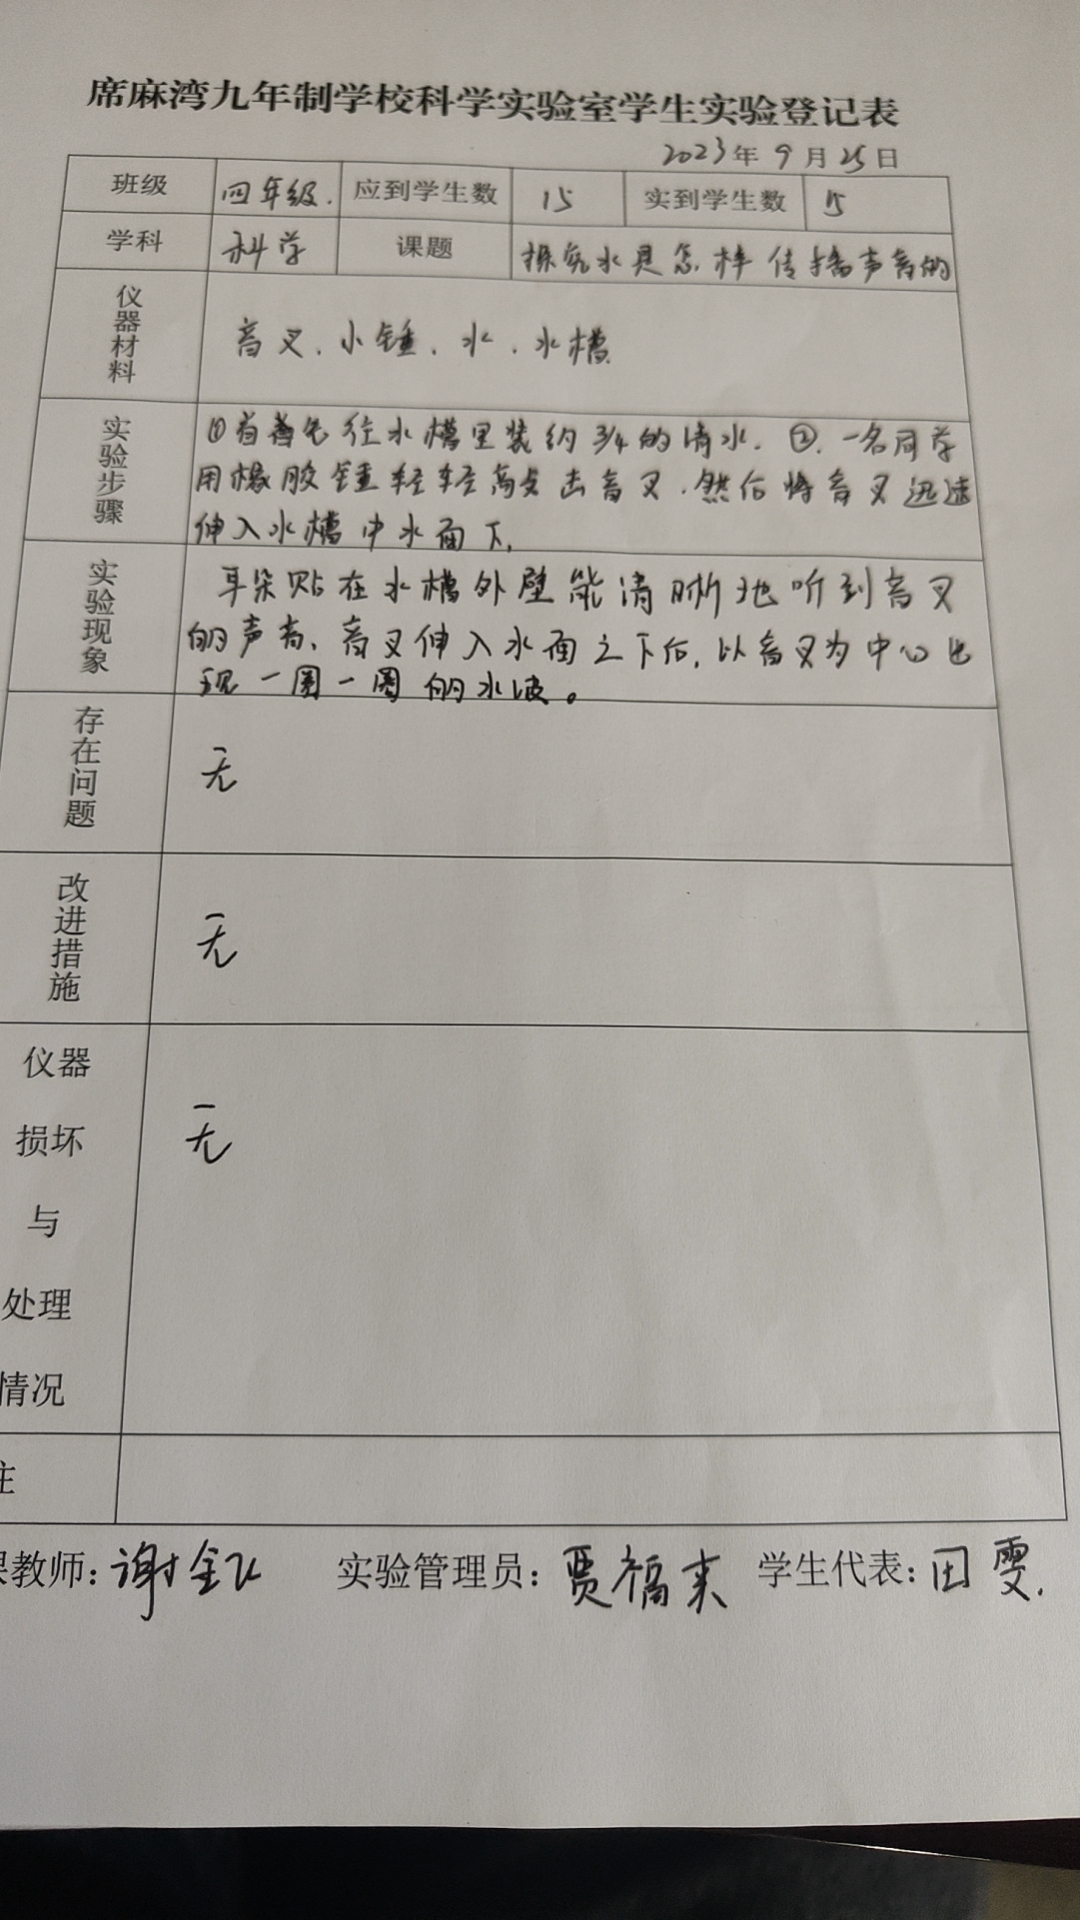 席麻湾九年制学校科学实验室学生实验登记表
2023年9月25日
班级 四年级. 应到学生数 15 实到学生数 15
学科 科学 课题 探究水是怎样传播声音的
仪器材料 音叉、小锤、水、水槽
实验步骤 ①首先往水槽里装约3/4的清水. ②、一名同学
用橡胶锤轻轻敲击音叉.然后将音叉迅速
伸入水槽中水面下,
实验现象 耳朵贴在水槽外壁能清晰地听到音叉
的声音、音叉伸入水面之下后,以音叉为中心出
现一圈一圈的水波。
存在问题 无
改进措施 无
仪器
损坏 无
与
处理
情况
注
课教师: 谢 实验管理员: 贾福来 学生代表: 田雯.